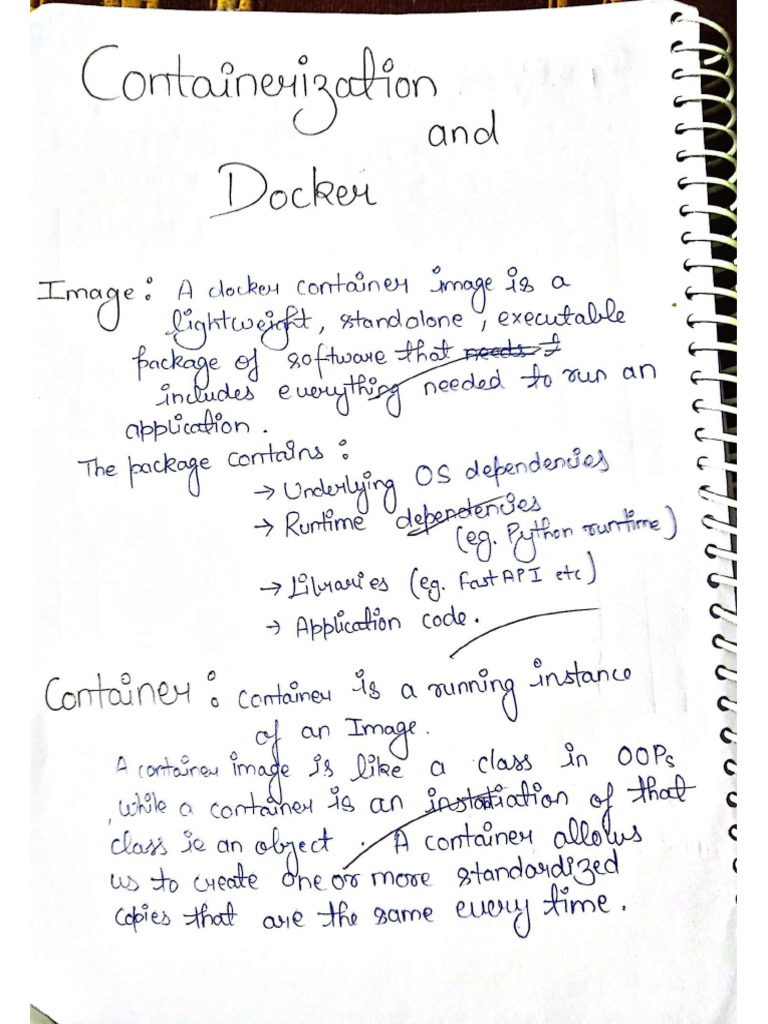 Containerization
and
Docker
Image: A docker container image is a
lightweight, standalone, executable
package of software that needs t
includes everything needed to run an
application.
The package contains:
→ Underlying OS dependencies
→ Runtime dependencies
(eg. Python runtime)
→ Libraries (eg. FastAPI etc)
→ Application code.
Container: Container is a running instance
of an Image.
A container image is like a class in OOPs
, while a container is an instatiation of that
class ie an object. A container allows
us to create one or more standardized
copies that are the same every time.